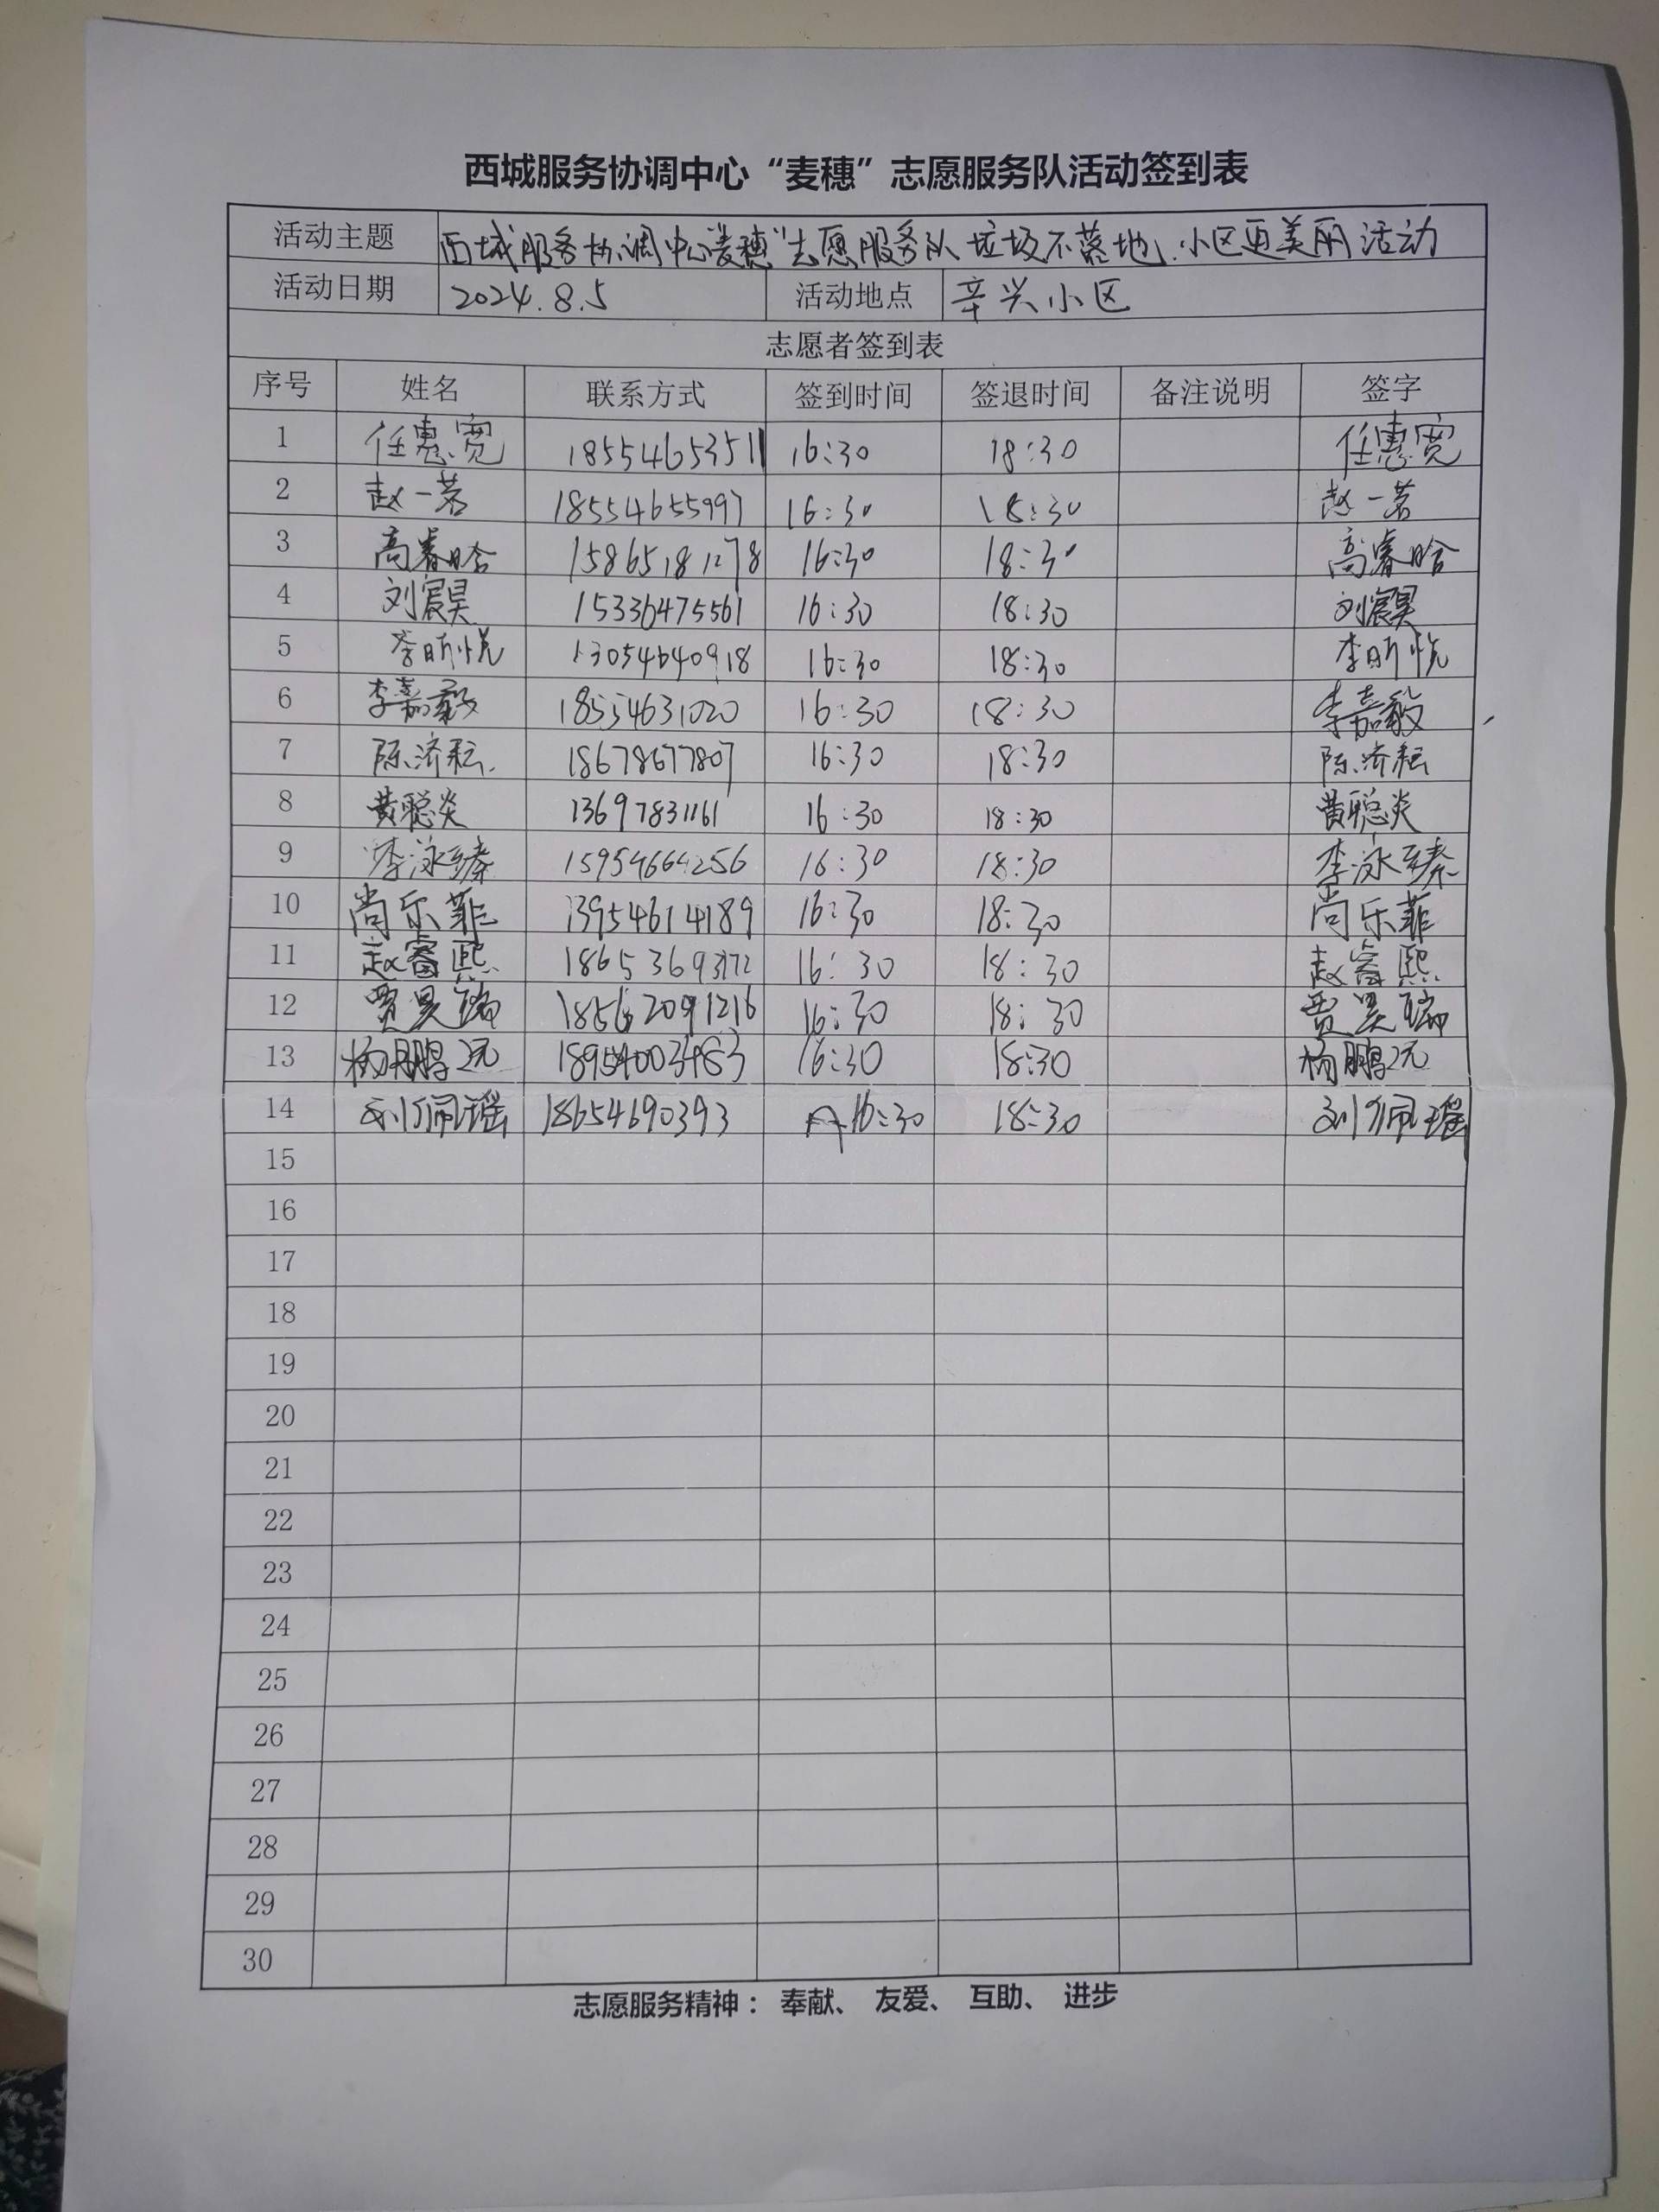 西城服务协调中心“麦穗”志愿服务队活动签到表
活动主题 西城服务协调中心“麦穗”志愿服务队垃圾不落地、小区更美丽活动
活动日期 2024.8.5 活动地点 辛兴小区
志愿者签到表
序号 姓名 联系方式 签到时间 签退时间 备注说明 签字
1 任惠宽 18554653511 16:30 18:30 任惠宽
2 赵一茗 18554655997 16:30 18:30 赵一茗
3 高睿晗 15865181278 16:30 18:30 高睿晗
4 刘宸昊 15336475561 16:30 18:30 刘宸昊
5 李昕悦 13054640918 16:30 18:30 李昕悦
6 李嘉毅 18554631020 16:30 18:30 李嘉毅
7 陈济耘 18678677807 16:30 18:30 陈济耘
8 黄聪炎 13697831161 16:30 18:30 黄聪炎
9 李泳臻 15954664256 16:30 18:30 李泳臻
10 尚乐菲 13954614189 16:30 18:30 尚乐菲
11 赵睿熙 16:30 18:30 赵睿熙
12 贾昊瑞 18562091216 16:30 18:30 贾昊瑞
13 杨鹏元 16:30 18:30 杨鹏元
14 刘佩瑶 18654690393 16:30 18:30 刘佩瑶
15
16
17
18
19
20
21
22
23
24
25
26
27
28
29
30
志愿服务精神： 奉献、 友爱、 互助、 进步